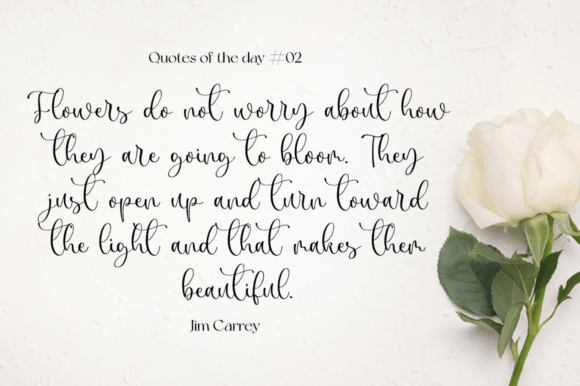 Quotes of the day #02
Flowers do not worry about how
they are going to bloom. They
just open up and turn toward
the light and that makes them
beautiful.
Jim Carrey